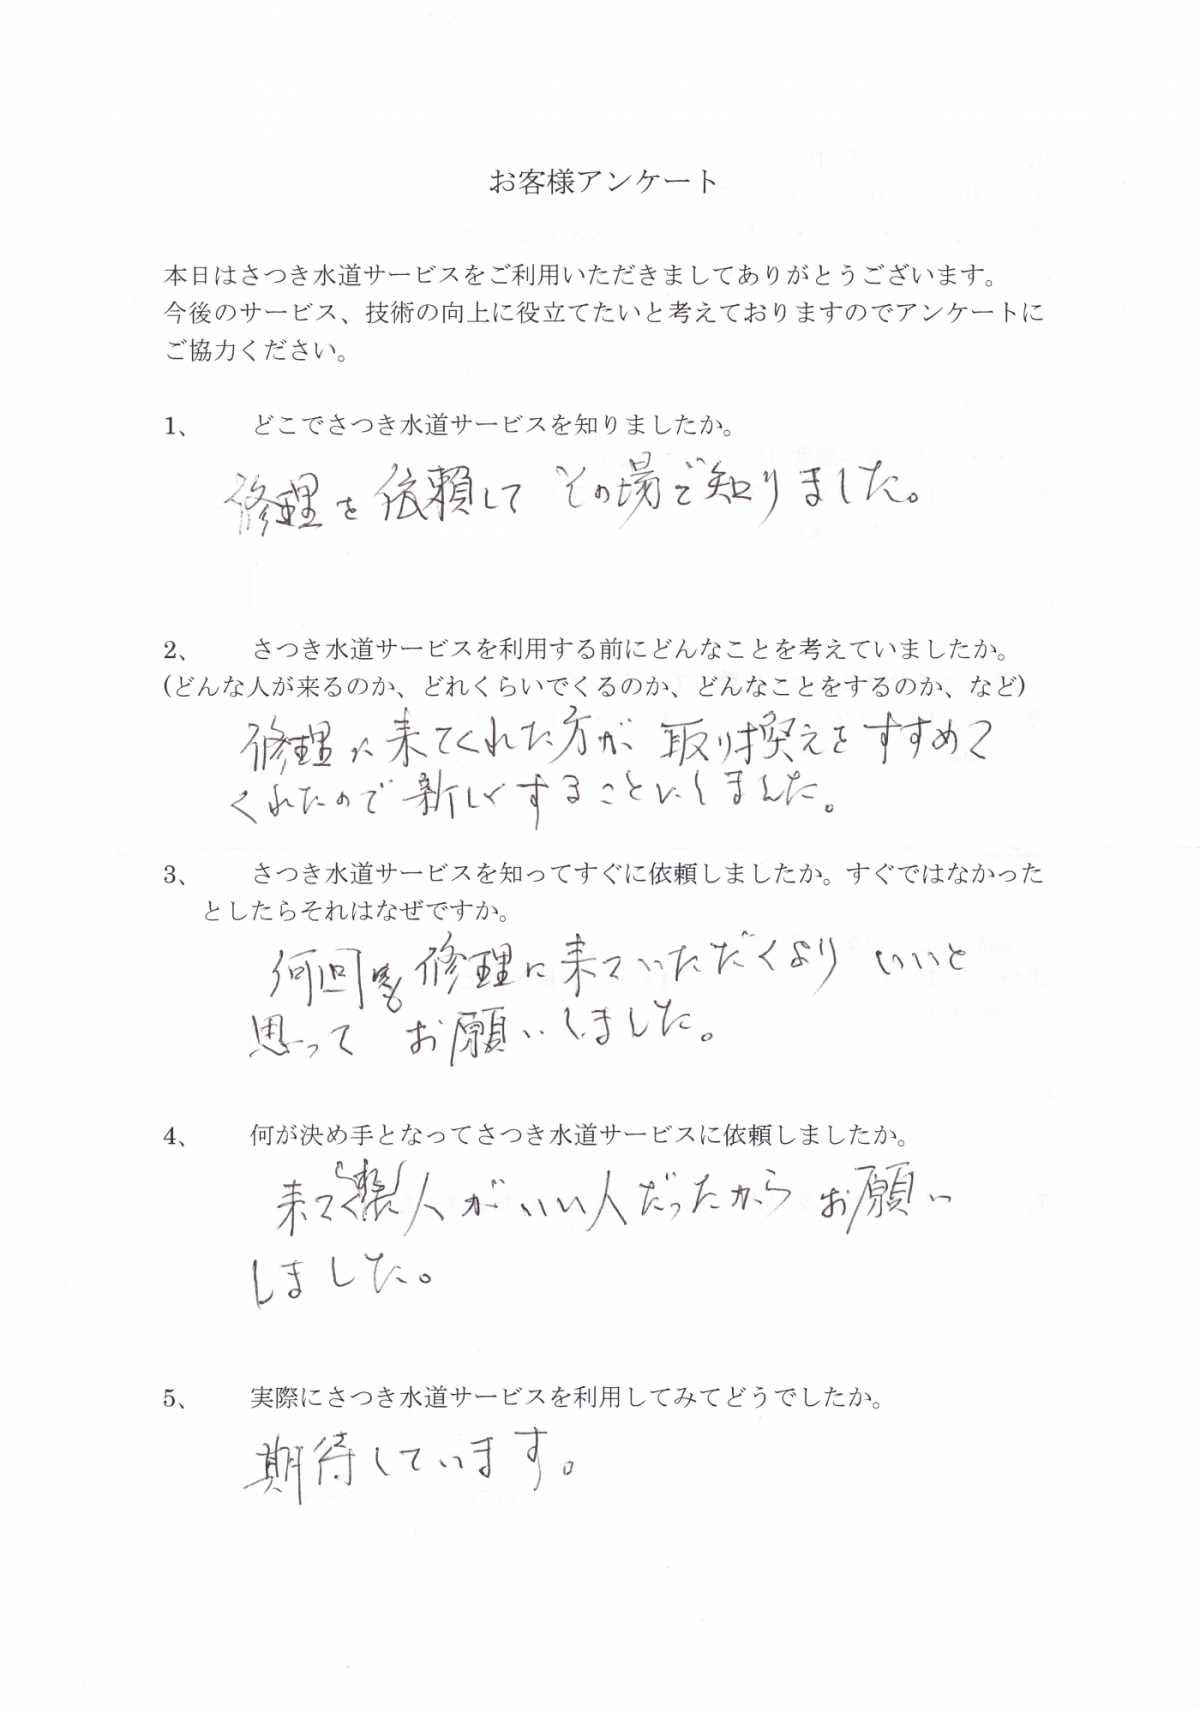 お客様アンケート
本日はさつき水道サービスをご利用いただきましてありがとうございます。
今後のサービス、技術の向上に役立てたいと考えておりますのでアンケートに
ご協力ください。
1、 どこでさつき水道サービスを知りましたか。
修理を依頼してその場で知りました。
2、 さつき水道サービスを利用する前にどんなことを考えていましたか。
(どんな人が来るのか、どれくらいでくるのか、どんなことをするのか、など)
修理に来てくれた方が取り換えをすすめて
くれたので新しくすることにしました。
3、 さつき水道サービスを知ってすぐに依頼しましたか。すぐではなかった
としたらそれはなぜですか。
何回も修理に来ていただくよりいいと
思って お願いしました。
4、 何が決め手となってさつき水道サービスに依頼しましたか。
来てく人がいい人だったからお願い
しました。
5、 実際にさつき水道サービスを利用してみてどうでしたか。
期待しています。